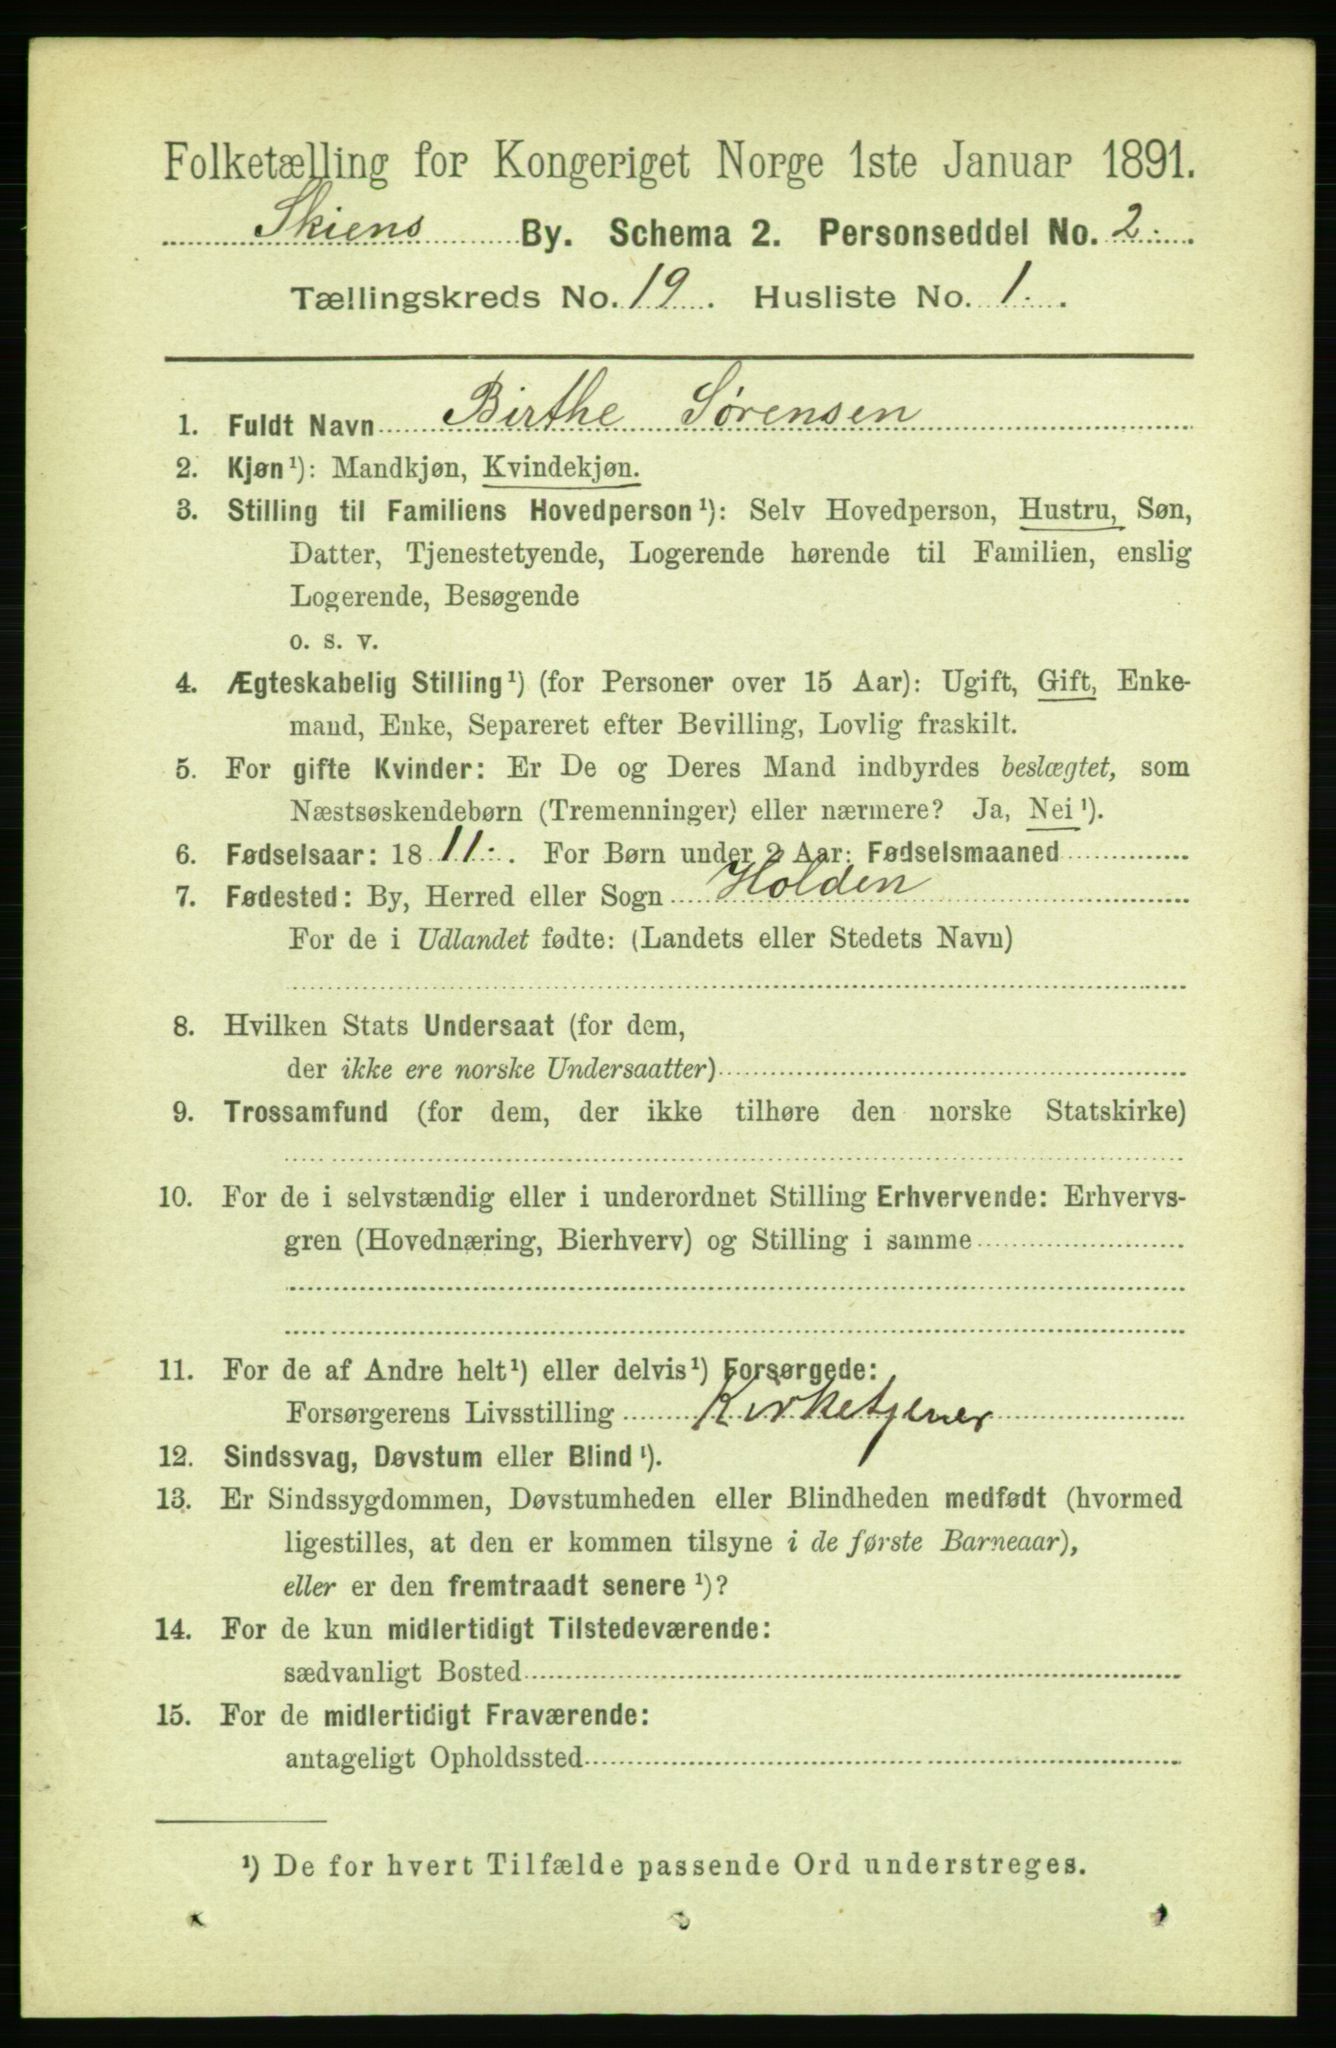 Folketælling for Kongeriget Norge 1ste Januar 1891.
Skiens By. Schema 2. Personseddel No. 2.
Tællingskreds No. 19. Husliste No. 1.
1. Fuldt Navn Birthe Sørensen
2. Kjøn¹): Mandkjøn, Kvindekjøn.
3. Stilling til Familiens Hovedperson¹): Selv Hovedperson, Hustru, Søn,
Datter, Tjenestetyende, Logerende hørende til Familien, enslig
Logerende, Besøgende
o. s. v.
4. Ægteskabelig Stilling¹) (for Personer over 15 Aar): Ugift, Gift, Enke-
mand, Enke, Separeret efter Bevilling, Lovlig fraskilt.
5. For gifte Kvinder: Er De og Deres Mand indbyrdes beslægtet, som
Næstsøskendebørn (Tremenninger) eller nærmere? Ja, Nei¹).
6. Fødselsaar: 1811. For Børn under 2 Aar: Fødselsmaaned
7. Fødested: By, Herred eller Sogn Holden
For de i Udlandet fødte: (Landets eller Stedets Navn)
8. Hvilken Stats Undersaat (for dem,
der ikke ere norske Undersaatter)
9. Trossamfund (for dem, der ikke tilhøre den norske Statskirke)
10. For de i selvstændig eller i underordnet Stilling Erhvervende: Erhvervs-
gren (Hovednæring, Bierhverv) og Stilling i samme
11. For de af Andre helt¹) eller delvis¹) Forsørgede:
Forsørgerens Livsstilling Kirketjener
12. Sindssvag, Døvstum eller Blind¹).
13. Er Sindssygdommen, Døvstumheden eller Blindheden medfødt (hvormed
ligestilles, at den er kommen tilsyne i de første Barneaar),
eller er den fremtraadt senere¹)?
14. For de kun midlertidigt Tilstedeværende:
sædvanligt Bosted
15. For de midlertidigt Fraværende:
antageligt Opholdssted
¹) De for hvert Tilfælde passende Ord understreges.